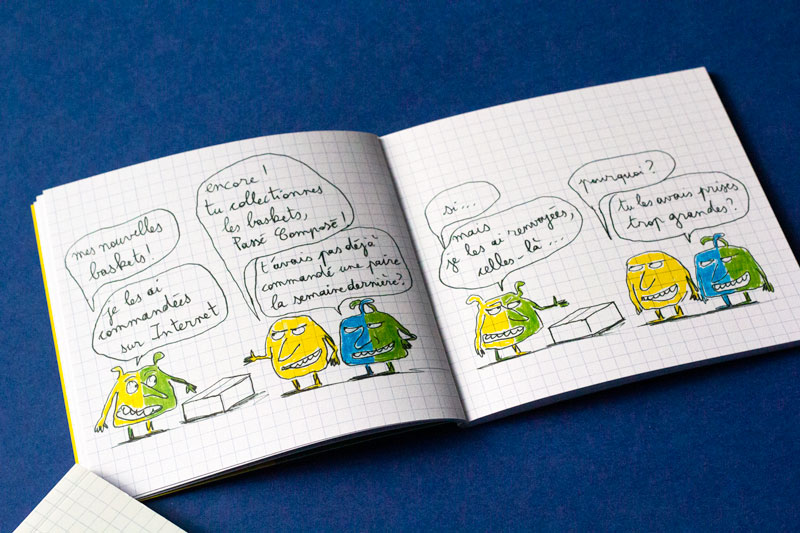 mes nouvelles
baskets !
je les ai
commandées
sur Internet
encore !
tu collectionnes
les baskets,
Passé Composé !
t'avais pas déjà
commandé une paire
la semaine dernière ?
si...
mais
je les ai renvoyées,
celles-là...
pourquoi ?
tu les avais prises
trop grandes ?